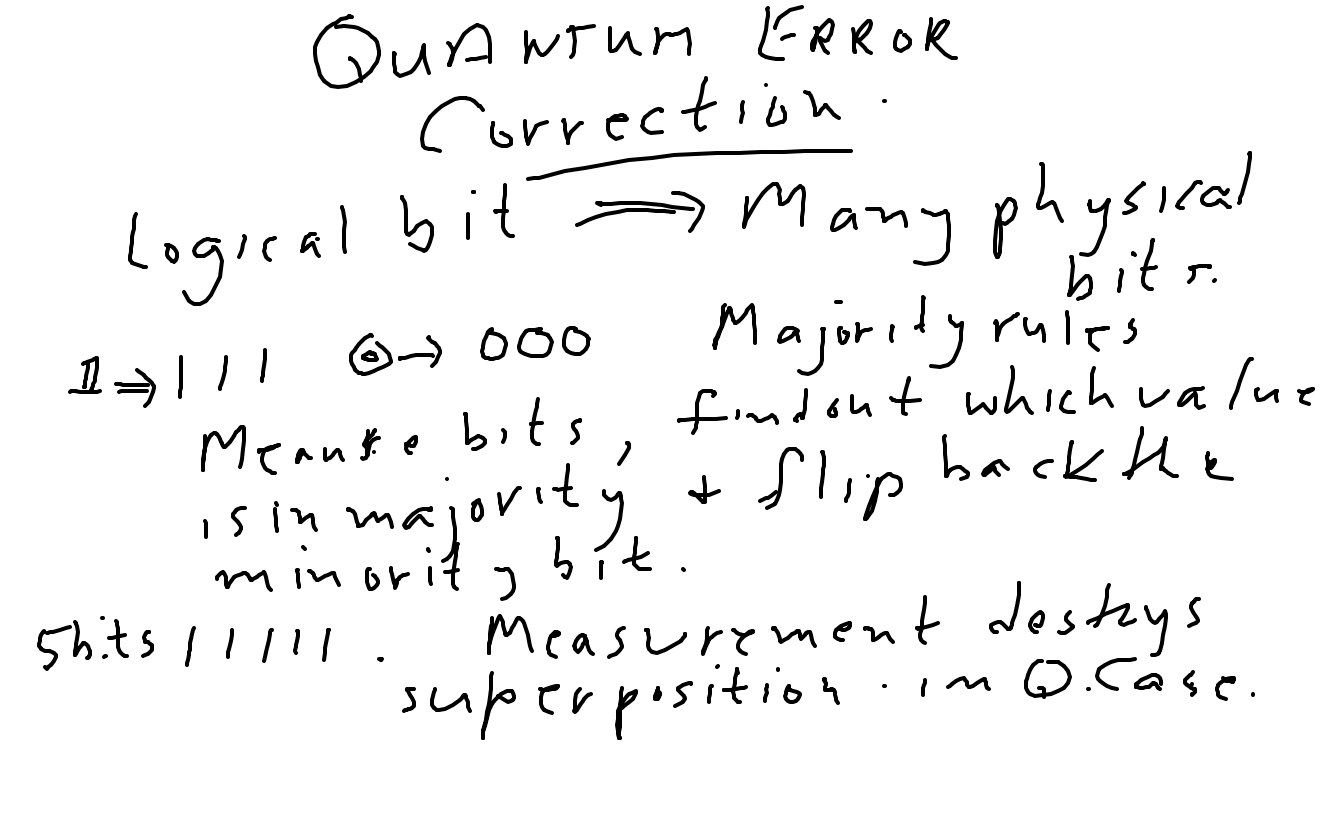 QUANTUM ERROR
Correction.
Logical bit ⟹ Many physical
bits.
1 ⇒ 111 0 → 000 Majority rules
Measure bits, find out which value
is in majority + flip back the
minority bit.
5 bits 11111. Measurement destrys
superposition. in Q. Case.